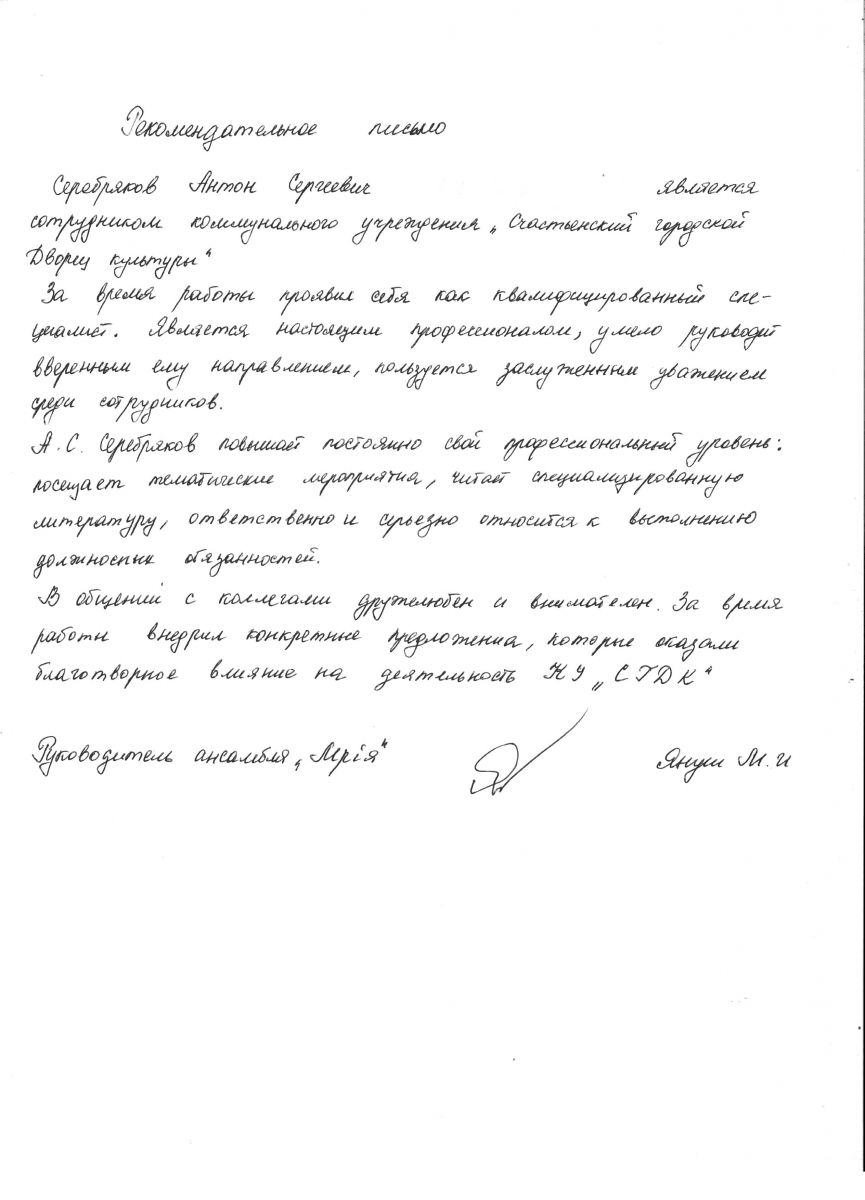 Рекомендательное письмо
Серебряков Антон Сергеевич является
сотрудником коммунального учреждения „Счастьенский городской
Дворец культуры“
За время работы проявил себя как квалифицированный спе-
циалист. Является настоящим профессионалом, умело руководит
вверенным ему направлением, пользуется заслуженным уважением
среди сотрудников.
А.С. Серебряков повышает постоянно свой профессиональный уровень:
посещает тематические мероприятия, читает специализированную
литературу, ответственно и серьезно относится к выполнению
должностных обязанностей.
В общении с коллегами дружелюбен и внимателен. За время
работы внедрил конкретные предложения, которые оказали
благотворное влияние на деятельность КУ „СГДК“
Руководитель ансамбля „Мрія“ Януш М.И